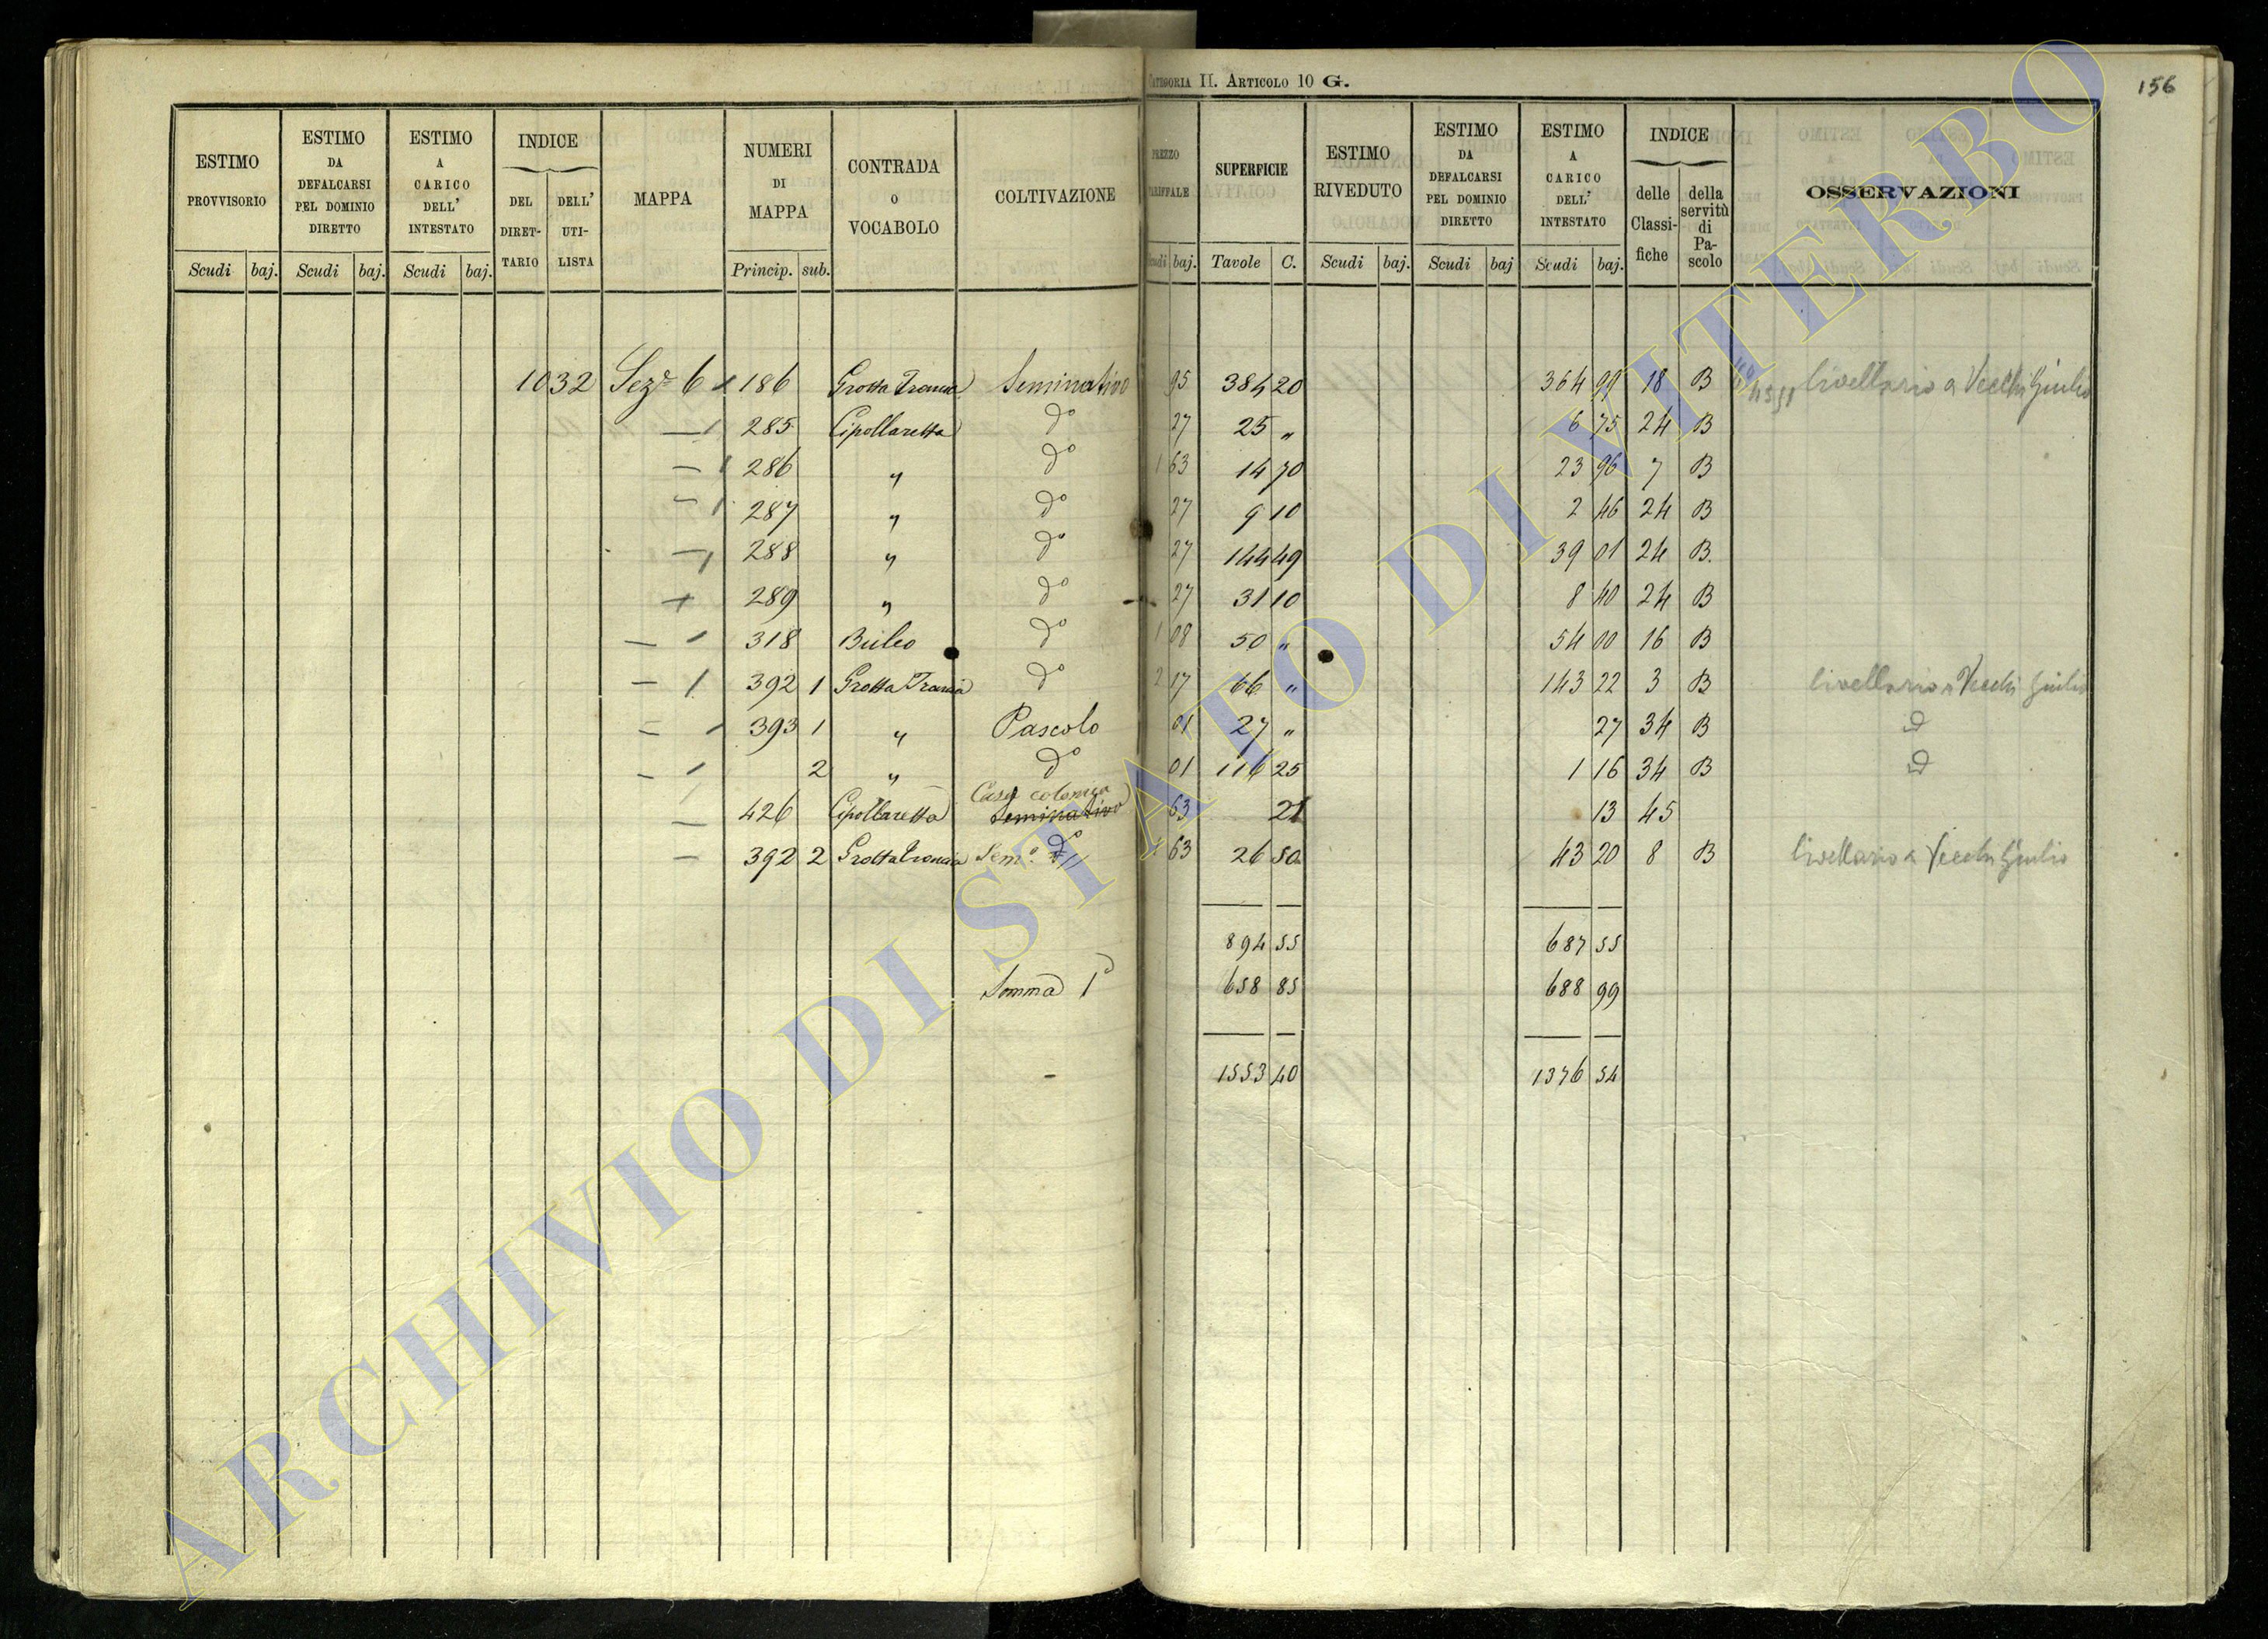 CATEGORIA II. ARTICOLO 10 G.
156
ESTIMO PROVVISORIO
ESTIMO DA DEFALCARSI PEL DOMINIO DIRETTO
ESTIMO A CARICO DELL' INTESTATO
INDICE
DEL DIRET-TARIO
DELL' UTI-LISTA
MAPPA
NUMERI DI MAPPA
CONTRADA O VOCABOLO
COLTIVAZIONE
PREZZO TARIFFALE
SUPERFICIE
ESTIMO RIVEDUTO
ESTIMO DA DEFALCARSI PEL DOMINIO DIRETTO
ESTIMO A CARICO DELL' INTESTATO
INDICE
delle Classi-fiche
della servitù di Pa-scolo
OSSERVAZIONI
Scudi baj. Scudi baj. Scudi baj. Princip. sub. Scudi baj. Tavole C. Scudi baj. Scudi baj Scudi baj.
1032 Sez.e 6 186 Grotta Troncia Seminativo 95 384 20 364 99 18 B livellario a Vecchi Giulio
— 285 Cipollaretta do 27 25 " 6 75 24 B
— 286 " do 1 63 14 70 23 96 7 B
— 287 " do 27 9 10 2 46 24 B
— 288 " do 27 144 49 39 01 24 B.
— 289 " do 27 31 10 8 40 24 B
— 318 Buleo do 1 08 50 " 54 00 16 B
— 392 1 Grotta Troncia do 2 17 66 " 143 22 3 B livellario a Vecchi Giulio
= 393 1 " Pascolo 01 27 " 27 34 B d
— 2 " do 01 116 25 1 16 34 B d
Casa colonica
— 426 Cipollaretta Seminativo 63 21 13 45
— 392 2 Grotta troncia Sem.o do 1 63 26 50 43 20 8 B livellario a Vecchi Giulio
894 55 687 55
Somma 1a 658 85 688 99
1553 40 1376 54
ARCHIVIO DI STATO DI VITERBO